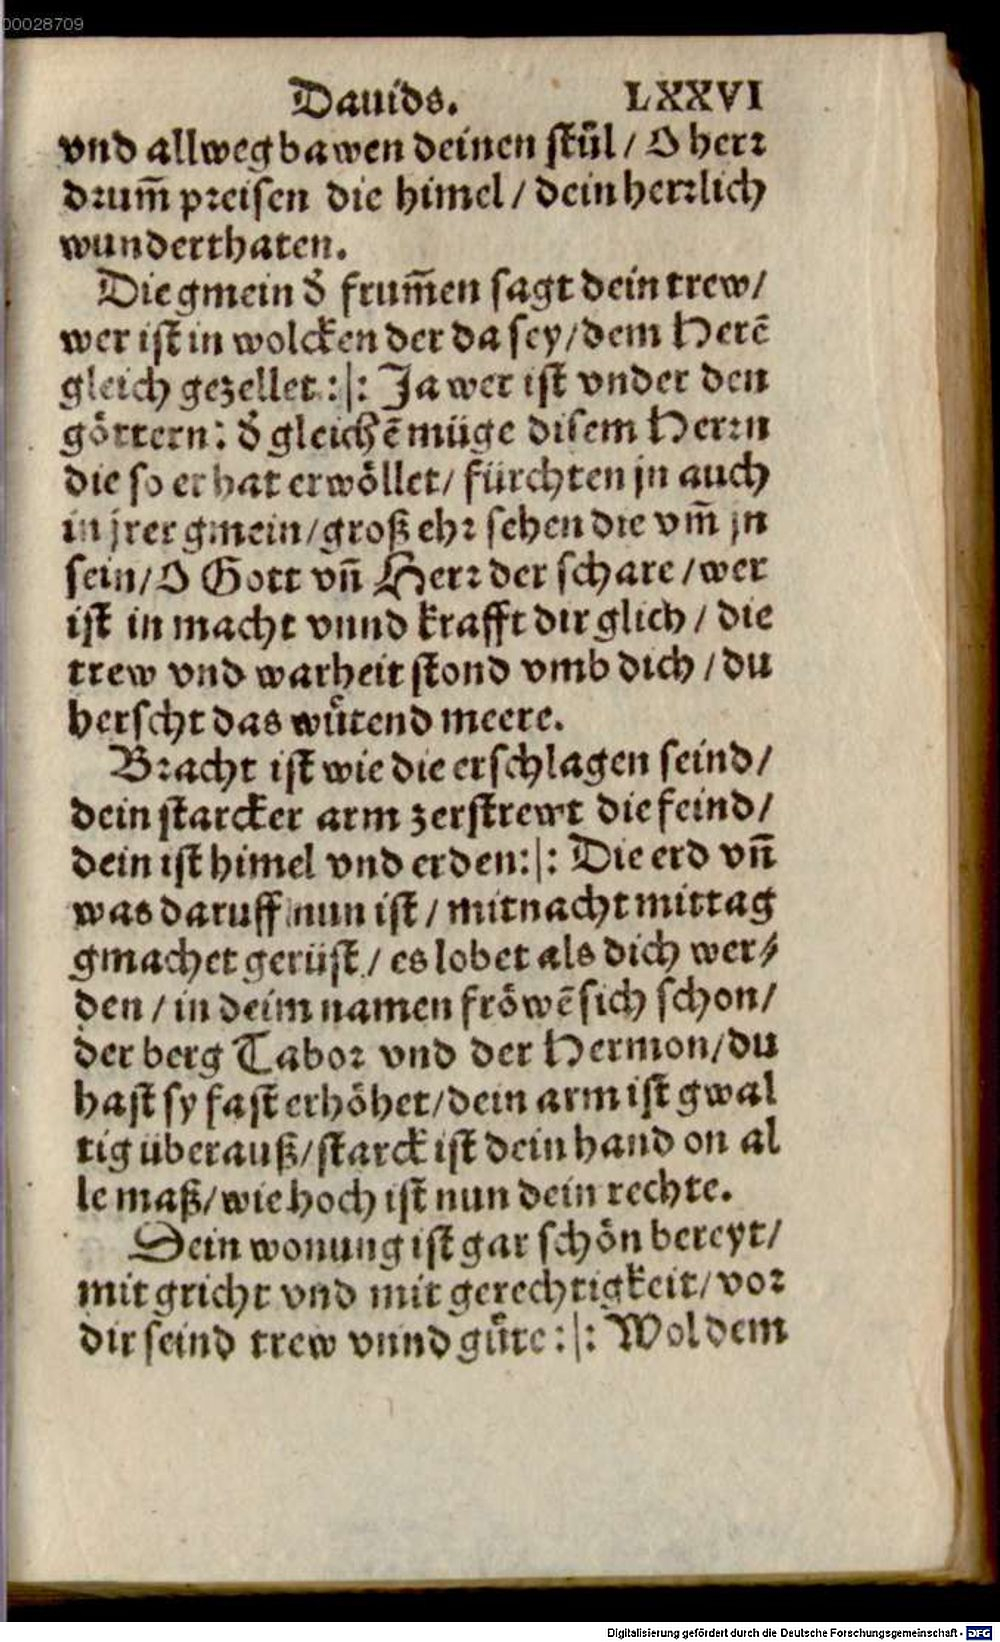 00028709
Dauids. LXXVI
vnd allweg bawen deinen stůl / O herꝛ
dꝛum̃ pꝛeisen die himel / dein herꝛlich
wunderthaten.
Die gmein d̕ frum̃en sagt dein trew /
wer ist in wolcken der da sey / dem Herẽ
gleich gezellet :|: Ja wer ist vnder den
göttern: d̕ gleichẽ müge disem Herꝛn
die so er hat erwöllet / fürchten jn auch
in jrer gmein / groß ehꝛ sehen die vm̃ jn
sein / O Gott vñ Herꝛ der schare / wer
ist in macht vnnd krafft dir glich / die
trew vnd warheit stond vmb dich / du
herscht das wůtend meere.
Bꝛacht ist wie die erschlagen seind /
dein starcker arm zerstrewt die feind /
dein ist himel vnd erden :|: Die erd vñ
was daruff nun ist / mitnacht mittag
gmachet gerüst / es lobet als dich wer⸗
den / in deim namen fröwẽ sich schon /
der berg Taboꝛ vnd der Hermon / du
hast sy fast erhöhet / dein arm ist gwal
tig überauß / starck ist dein hand on al
le maß / wie hoch ist nun dein rechte.
Dein wonung ist gar schön bereyt /
mit gricht vnd mit gerechtigkeit / voꝛ
dir seind trew vnnd gůte :|: Wol dem
Digitalisierung gefördert durch die Deutsche Forschungsgemeinschaft - DFG